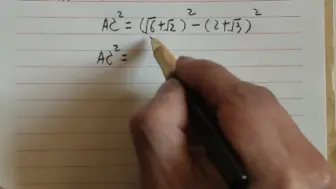 AC² = (√6+√2)² − (2+√3)²
AC² =